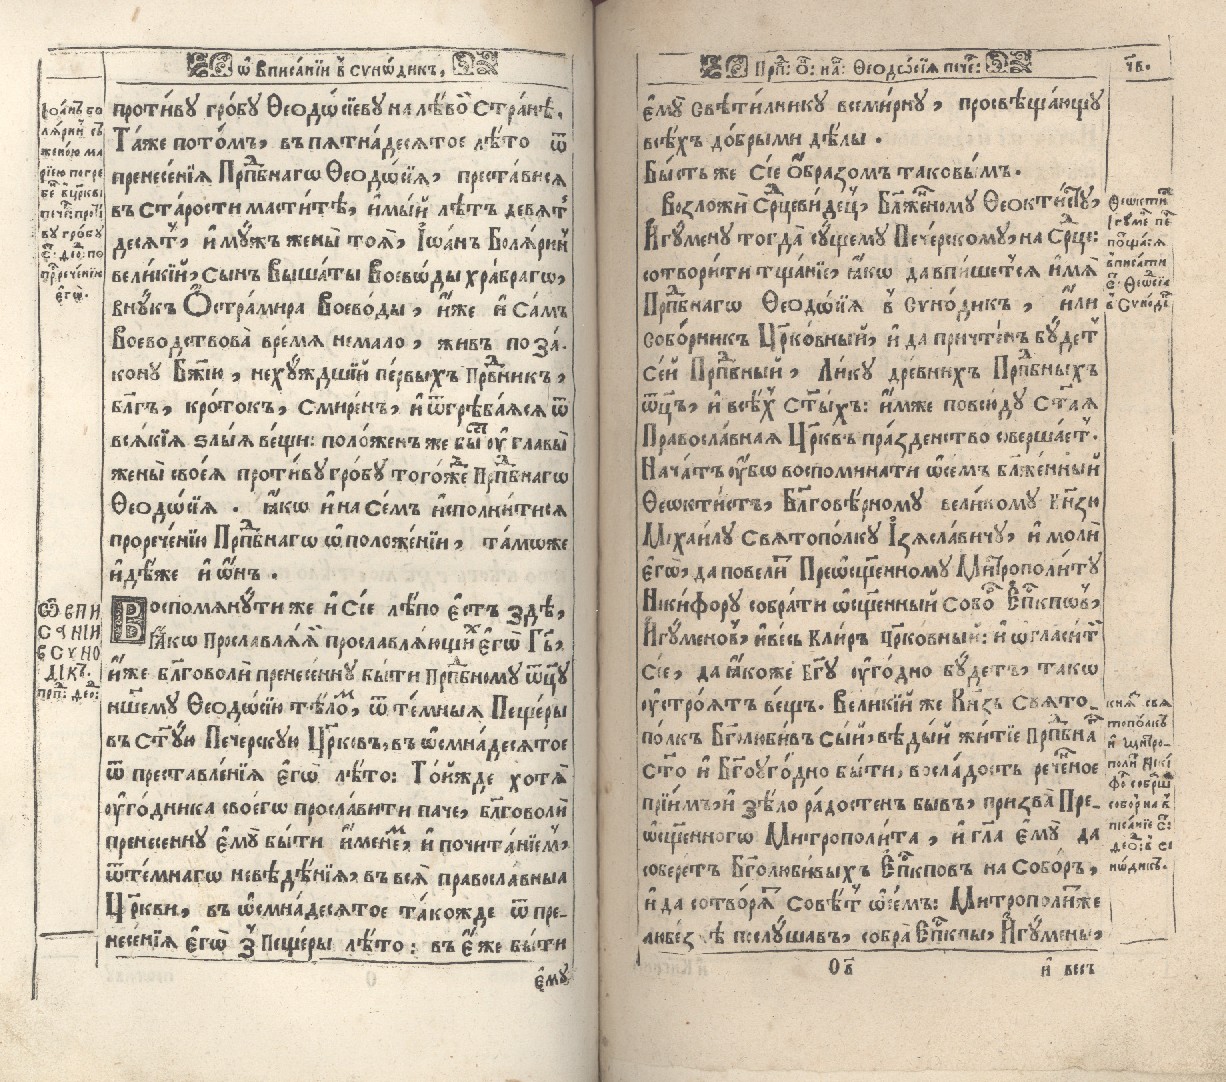 ѿ Вписа́нїи в̾ сѵнѡ́дикъ,
Іѡа́нъ бо
ля́ринъ съ
жено́ю ма
рі́ею погре
бе́ в̾ це́ркви
пече: проти́
ву гро́бу
с: ѳео: по
прⷪ҇рече́нїю
є҆гѡ̀.
проти́ву гро́бу Ѳеодо́сїеву на лѣ́вой странѣ̀.
Та́же пото́мъ, въ пятна́десятое лѣ́то ѿ
пренесе́нїя Прⷣпбнагѡ Ѳеодѡ́сїя, преста́вися
въ ста́рости масти́тѣ, и҆мы́й лѣ́тъ де́вят̾
деся́т̾, и҆ му́жъ жены̀ тоя̀, І҆ѡа́нъ Боля́ринъ
вели́кїй, сы́нъ Выша́ты Воево́ды хра́брагѡ,
вну́къ Ѻ҆страми́ра Воево́ды, и҆́же и҆ са́мъ
Воево́дствова вре́мя нема́ло, жи́въ по за́-
кону Бж҃їю, неху́ждшїй пе́рвыхъ Првⷣникъ,
бл҃гъ, кро́токъ, смире́нъ, и҆ ѿгреба́яся ѿ
вся́кїя ѕлы́я ве́щи: поло́женъ же бы́сть оу҆ главы̀
жены̀ своея̀ проти́ву гро́бу того́жде Прⷣпбнагѡ
Ѳеодѡ́сїя. ꙗ҆́кѡ и҆ на се́мъ и҆спо́лнитися
прорече́нїю Прⷣпбнагѡ ѡ҆ положе́нїи, та́мѡже
и҆дѣ́же и҆ ѻ҆́нъ.
Ѡ҆ впи
са́нїи
в сѵно
дїкъ.
прпⷣ: ѳео:
Воспомяну́ти же и҆ сїѐ лѣ́по є҆́стъ здѣ̀,
ꙗ҆́кѡ прославля́яй прославля́ющихъ є҆гѡ̀ Гь҃,
и҆́же бл҃говолѝ пренесе́нну бы́ти Прⷣпбному ѻ҆тцу̀
на́шему Ѳеодѡ́сїю тѣ́лом̾, ѿ те́мныя Пеще́ры
въ ст҃у́ю Пече́рскую Цр҃ковь, въ ѻ҆смна́десятое
ѿ преставле́нїя є҆гѡ̀ лѣ́то: То́йжде хотя̀
оу҆го́дника своегѡ̀ просла́вити па́че, бл҃говолѝ
пренесе́нну є҆му̀ бы́ти и҆́менем̾, и҆ почита́нїем̾,
ѿ те́мнагѡ невѣ́дѣнїя, въ вся̀ правосла́вныя
Цр҃кви, въ ѻ҆смна́десятое та́кожде ѿ пре-
несе́нїя є҆гѡ̀ з̾ Пеще́ры лѣ́то: въ є҆́же бы́ти
є҆мꙋ̀
Прпⷣ: Ѻ҃: на: Ѳеодѡ́сїя пече:
ч҃в.
є҆му̀ свѣти́лнику всеми́рну, просвѣща́ющу
всѣ́хъ до́брыми дѣ́лы.
Бы́сть же сїѐ ѻ҆́бразомъ таковы́мъ.
Возложѝ Срⷣцеви́децъ, Бл҃же́нному Ѳеокти́сту,
И҆гу́мену тогда̀ су́щему Пече́рскому, на срⷣце:
сотвори́ти тща́нїе, ꙗ҆́кѡ да впи́шется и҆́мя
Прⷣпбнагѡ Ѳеодѡ́сїя в̾ сѵно́дикъ, и҆́ли
собо́рникъ Цр҃ко́вный, и҆ да причте́нъ бу́дет̾
се́й Прⷣпбный, Ли́ку дре́внихъ Прⷣпбныхъ
ѻ҆ц҃ъ, и҆ всѣ́х̾ ст҃ы́хъ: и҆́мже повсю́ду ст҃а́я
Правосла́вная Цр҃ковь пра́зденство соверша́ет̾.
Нача́тъ оу҆́бѡ воспомина́ти ѡ҆ се́мъ бл҃же́нный
Ѳеокти́стъ, Бл҃говѣ́рному вели́кому Кн҃зю
Міхаи́лу Святопо́лку І҆зясла́вичу, и҆ молѝ
є҆гѡ̀, да повели́т̾ Преѡ҆сщ҃е́нному Митрополи́ту
Нікифо́ру собра́ти ѡ҆сщ҃е́нный собо́р̾ Є҆пⷭ҇кпѡвъ,
И҆гу́меновъ, и҆ ве́сь Кли́ръ Цр҃ко́вный: и҆ ѡ҆гласи́т̾
сїѐ, да ꙗ҆́коже Бг҃у оу҆го́дно бу́детъ, та́кѡ
оу҆стро́ятъ ве́щъ. Вели́кїй же Кн҃зь Свято-
по́лкъ Бг҃олюби́въ сы́й, вѣ́дый житїѐ Прⷣпбна
ст҃о и҆ Бг҃оуго́дно бы́ти, в сла́дость рече́нное
прїи́мъ, и҆ зѣ́ло ра́достенъ бы́въ, призва̀ Пре-
ѡ҆сщ҃е́нногѡ Митрополи́та, и҆ гл҃а є҆му̀ да
собере́тъ Бг҃олюби́выхъ Є҆пⷭ҇кповъ на Собо́ръ,
и҆ да сотворя́т̾ совѣ́т̾ ѡ҆ се́мъ: Митрополи́т̾же
любе́знѣ послу́шавъ, собра̀ Є҆пⷭ҇кпы, И҆гу́мены,
Ѳеокти́ст̾
Ігу́мен̾ пе
потща́ся
вписа́ти
с: Ѳеодо́сїя
в̾ Сѵно́дік̾
кня́з̾ свя
топо́лкъ
и҆ митро-
поли́т̾ Ники
фо́р̾ собра́ша
собо́р на в̾
писа́нїе с:
ѳео: в̾ сѵ
но́дикъ.
Ѻ҃в
и҆ ве́сь